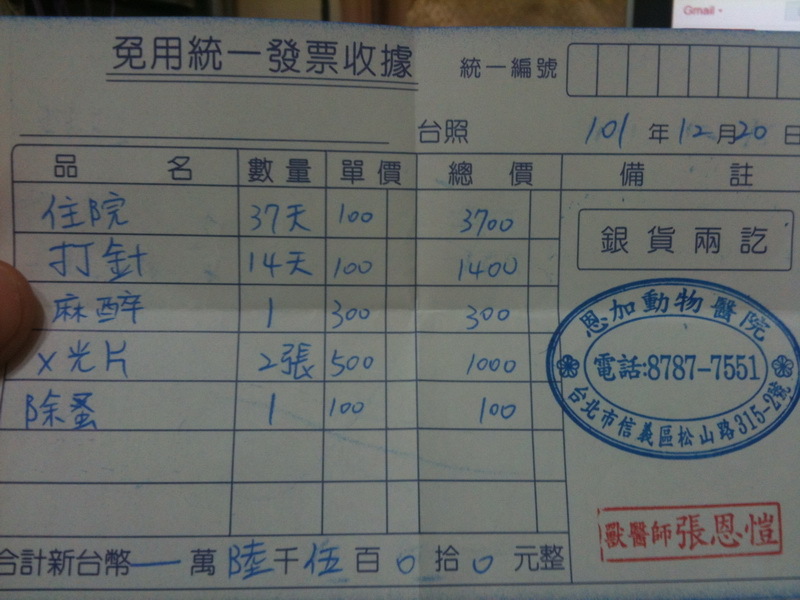 Gmail
免用統一發票收據
統一編號
台照
101年12月20日
品名 數量 單價 總價 備註
住院 37天 100 3700
打針 14天 100 1400
麻醉 1 300 300
X光片 2張 500 1000
除蚤 1 100 100
銀貨兩訖
恩加動物醫院
電話:8787-7551
台北市信義區松山路315-2號
獸醫師張恩愷
合計新台幣一萬陸千伍百0拾0元整